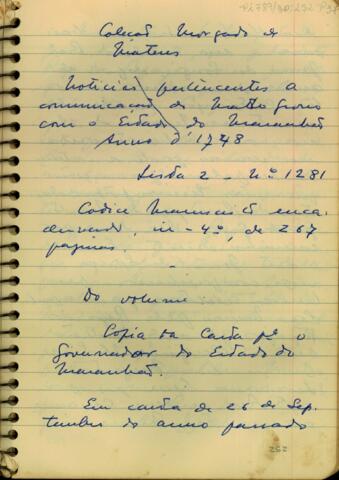 Colecção Morgado de
Mateus
Noticias pertencentes a
comunicação do Matto Grosso
com o Estado do Maranhão
Anno d'1748
Lisboa 2 - Nº 1281
Codice manuscrito enca-
dernado, in-4º, de 267
paginas.
-
Do volume
Copia da Carta pª o
Governador do Estado do
Maranhão.
Em carta de 26 de Sep-
tembro do anno passado
252